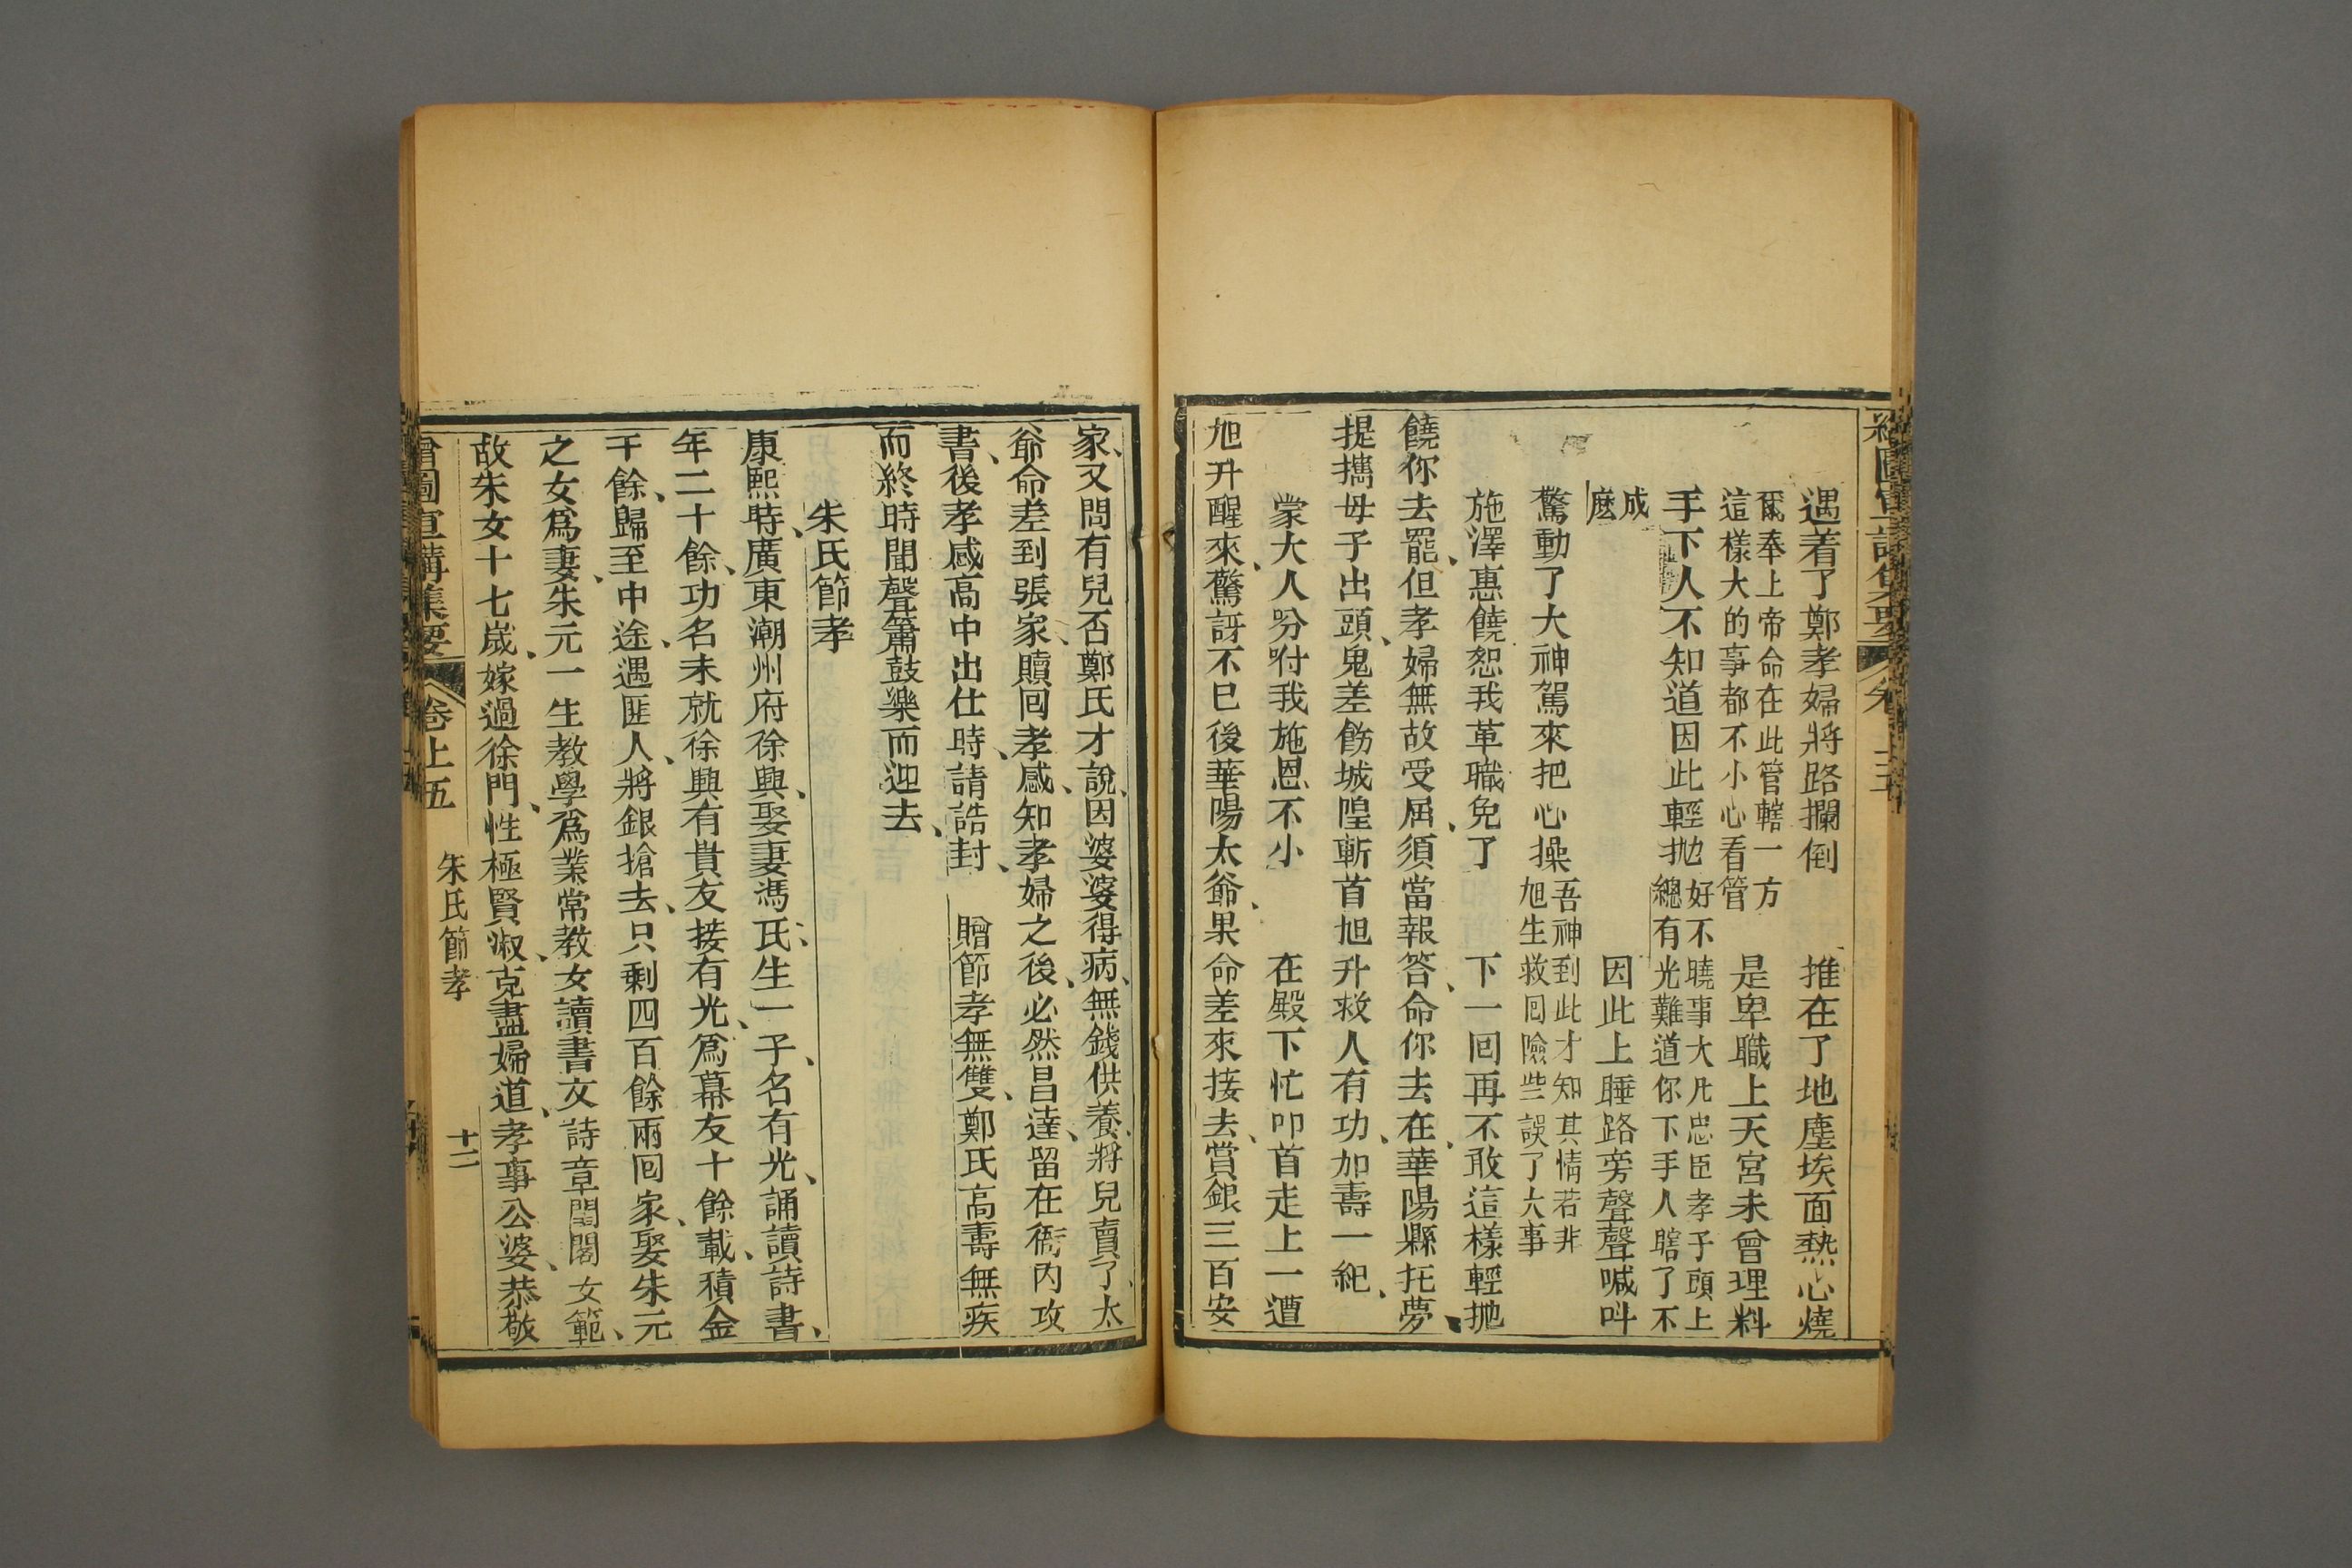 遇着了鄭孝婦將路攔倒　推在了地塵埃面熱心燒
爾奉上帝命在此管轄一方
這樣大的事都不小心看管
是卑職上天宮未曾理料
手下人不知道因此輕抛
好不曉事大凡忠臣孝子頭上
總有光難道你下手人瞎了不
成
麽
因此上睡路旁聲聲喊呌
驚動了大神駕來把心操
吾神到此才知其情若非
旭生救回險些誤了大事
施澤惠饒恕我革職免了　下一回再不敢這樣輕抛
饒你去罷但孝婦無故受屈、須當報答、命你去在華陽縣托夢、
提攜母子出頭、鬼差飭城隍斬首旭升救人有功、加壽一紀、
蒙大人吩咐我施恩不小　在殿下忙叩首走上一遭
旭升醒來、驚訝不已後華陽太爺、果命差來接去、賞銀三百安
家、又問有兒否鄭氏才說、因婆婆得病、無錢供養、將兒賣了、太
爺命差到張家、贖回孝感、知孝婦之後、必然昌達、留在衙內攻
書、後孝感高中出仕時、請誥封、　贈節孝無雙、鄭氏高壽無疾
而終時聞聲簫鼓樂而迎去、
朱氏節孝
康熙時、廣東潮州府徐興、娶妻馮氏、生一子、名有光、誦讀詩書、
年二十餘、功名未就徐興有貴友接有光、爲幕友十餘載、積金
千餘、歸至中途、遇匪人、將銀搶去、只剩四百餘兩回家、娶朱元
之女爲妻、朱元一生教學爲業常教女讀書文詩章閨閣女範、
故朱女十七歲、嫁過徐門、性極賢淑、克盡婦道、孝事公婆、恭敬
繪圖宣講集要　卷上五　朱氏節孝　十二